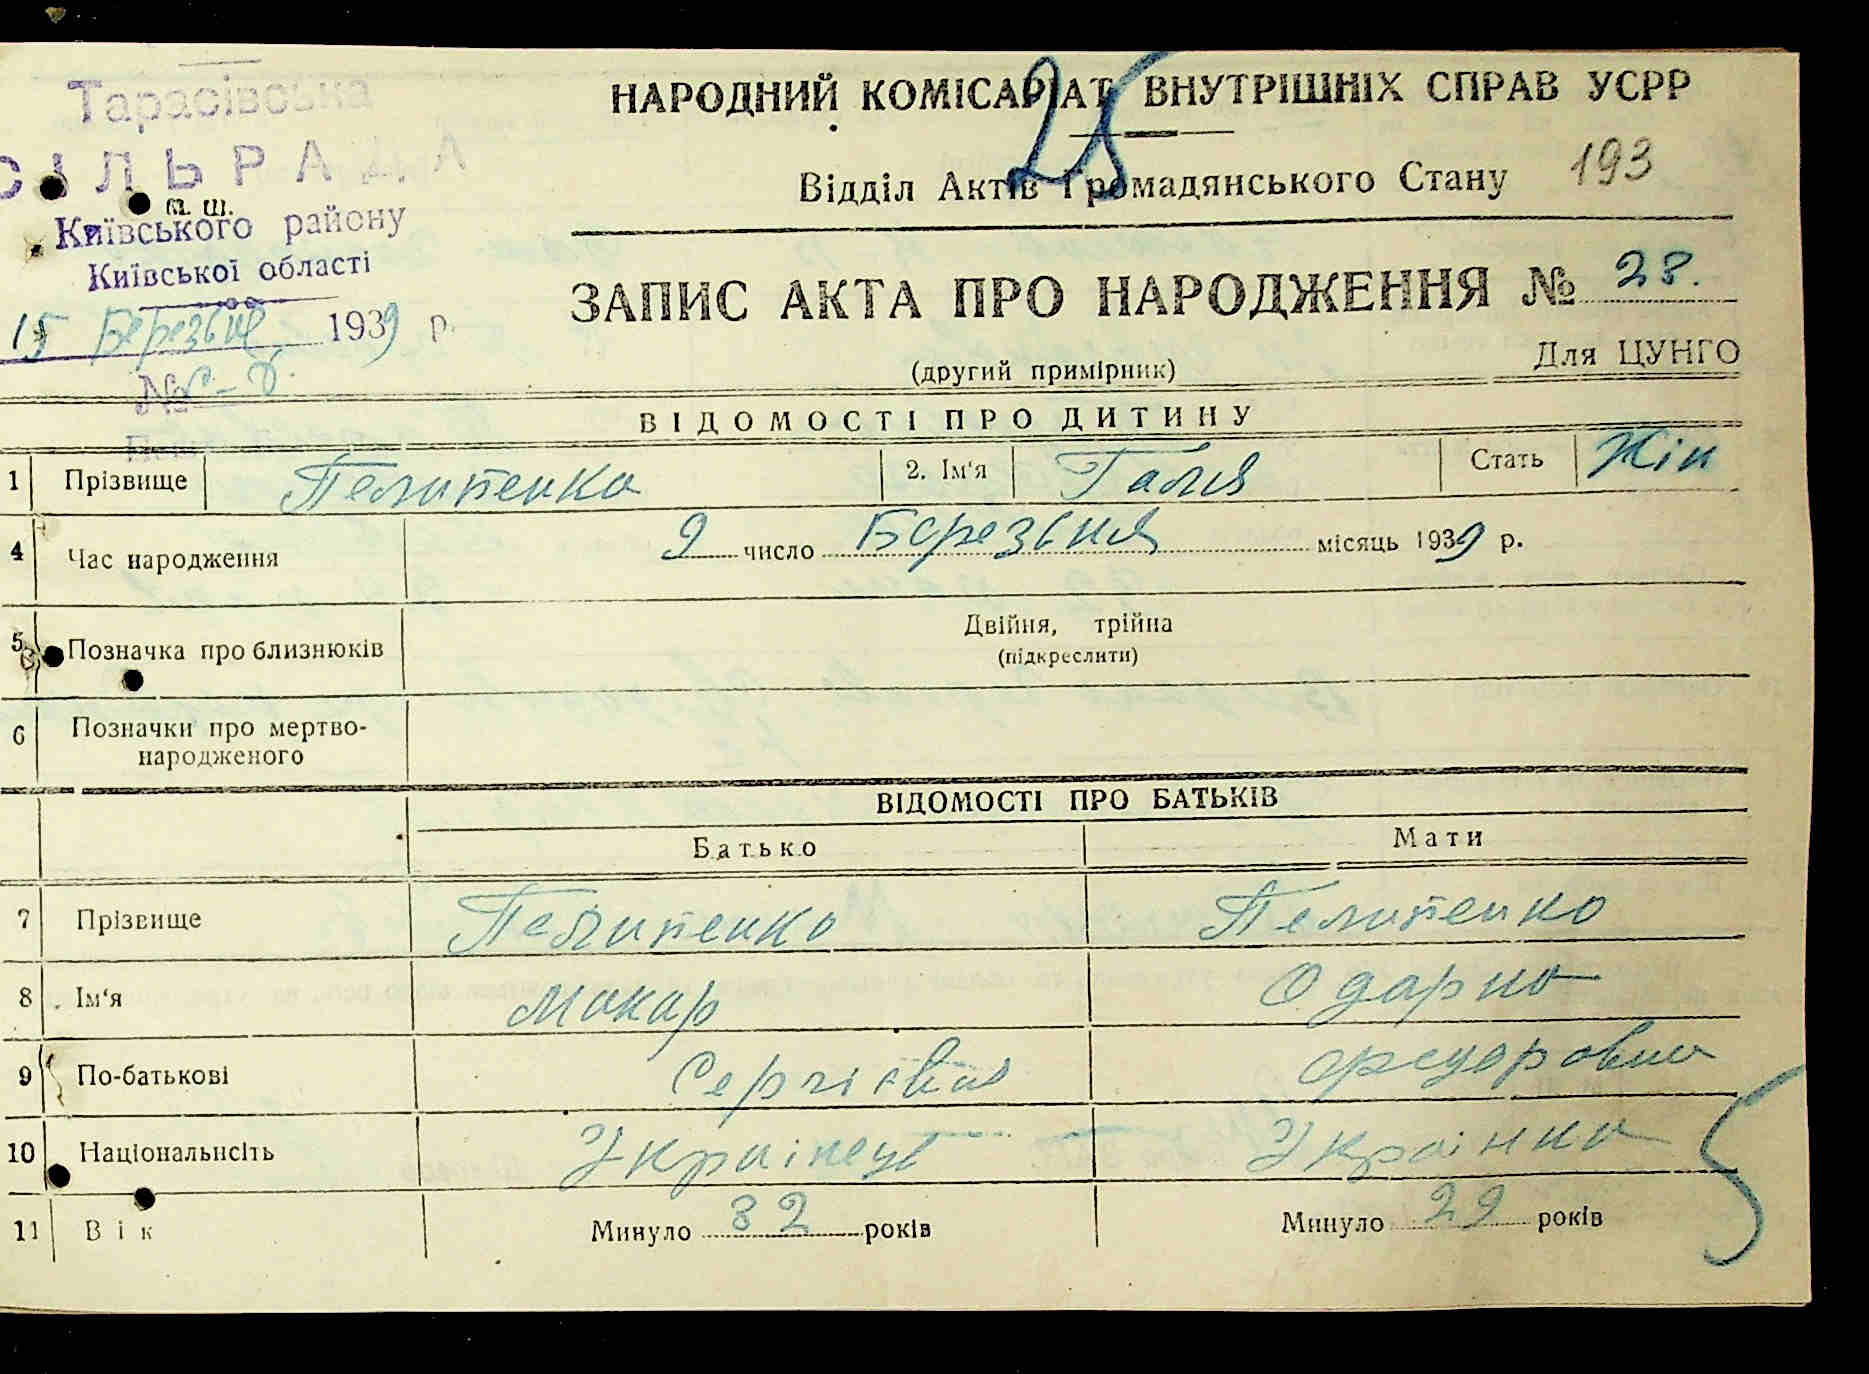 Тарасівська
СІЛЬРАДА
м. ш.
Київського району
Київської області
15 Березьня 1939 р.
№
НАРОДНИЙ КОМІСАРІАТ ВНУТРІШНІХ СПРАВ УСРР
25
Відділ Актів Громадянського Стану
193
ЗАПИС АКТА ПРО НАРОДЖЕННЯ № 28.
(другий примірник)
Для ЦУНГО
ВІДОМОСТІ ПРО ДИТИНУ
1 Прізвище Пелипенко 2. Ім'я Галя Стать Жін
4 Час народження 9 число Березьня місяць 1939 р.
5 Позначка про близнюків Двійня, трійна
(підкреслити)
6 Позначки про мертво-
народженого
ВІДОМОСТІ ПРО БАТЬКІВ
Батько Мати
7 Прізвище Пелипенко Пелипенко
8 Ім'я Макар Одарка
9 По-батькові Сергієвич Федоровна
10 Національнсіть Українець Українка
11 Вік Минуло 32 років Минуло 29 років